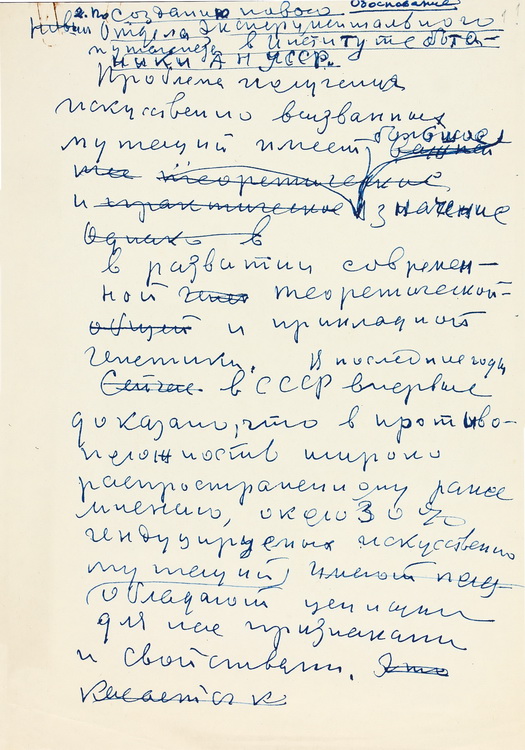 Обоснование
2. По созданию нового
Отдела экспериментального
мутагенеза в Институте бота-
ники АН УССР.
Проблема получения
искусственно вызванных
мутаций имеет большое
теоретическое
и практическое значение
Однако в
в развитии современ-
ной теоретической
общей и прикладной
генетики. В последние годы
Сейчас в СССР впервые
доказано, что в противо-
положность широко
распространенному ранее
мнению, около 30 %
индуцируемых искусственно
мутаций имеют
обладают ценными
для нас признаками
и свойствами. Это
касается к